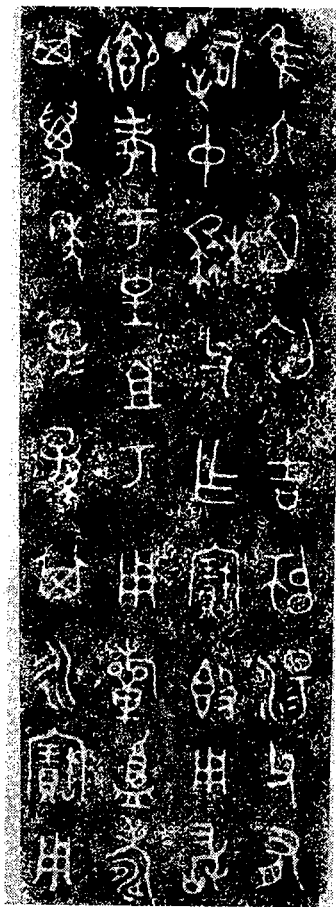 隹六月初吉師湯父有
司中柟父乍寶𣪘用敢
卿孝于皇且丂用祈眉壽
其萬年子孫其永寶用